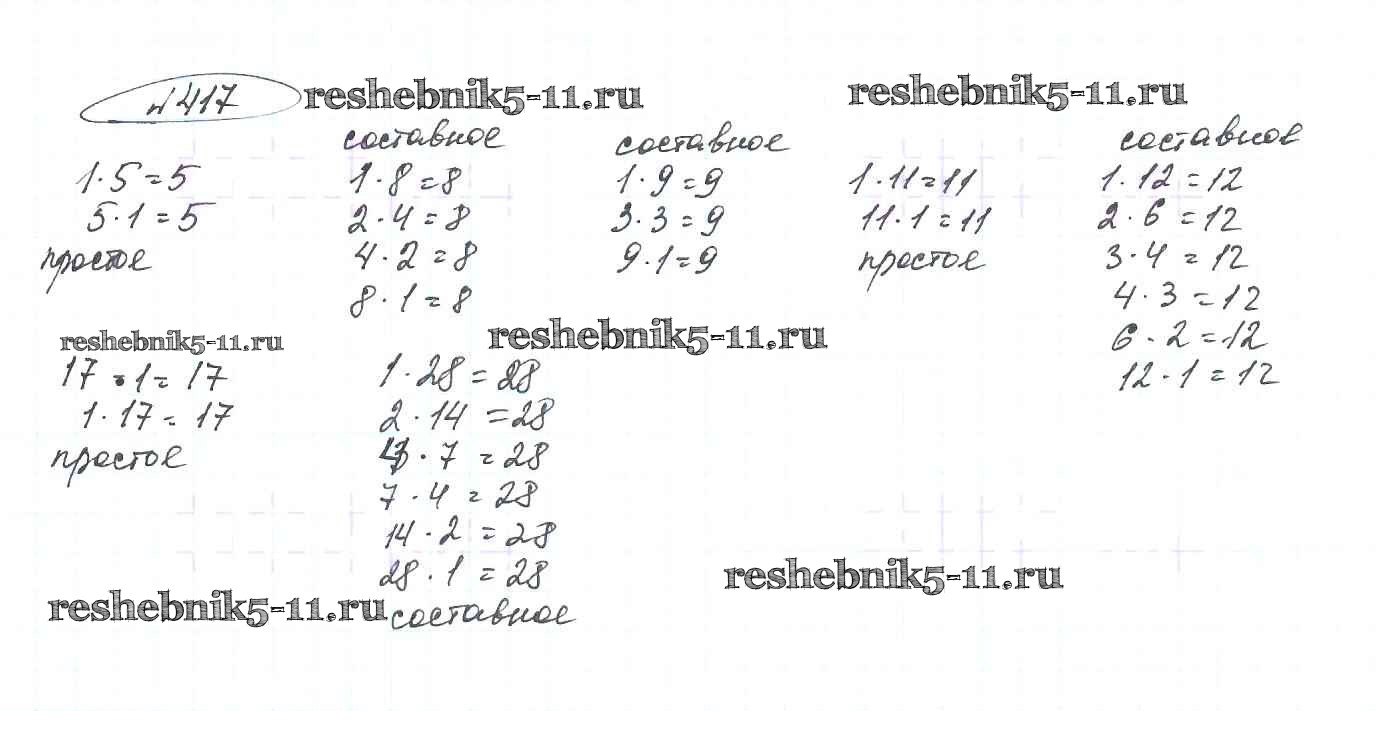 №417
reshebnik5-11.ru
reshebnik5-11.ru
1·5=5
5·1=5
простое
составное
1·8=8
2·4=8
4·2=8
8·1=8
составное
1·9=9
3·3=9
9·1=9
1·11=11
11·1=11
простое
составное
1·12=12
2·6=12
3·4=12
4·3=12
6·2=12
12·1=12
reshebnik5-11.ru
reshebnik5-11.ru
17·1=17
1·17=17
простое
1·28=28
2·14=28
4·7=28
7·4=28
14·2=28
28·1=28
составное
reshebnik5-11.ru
reshebnik5-11.ru